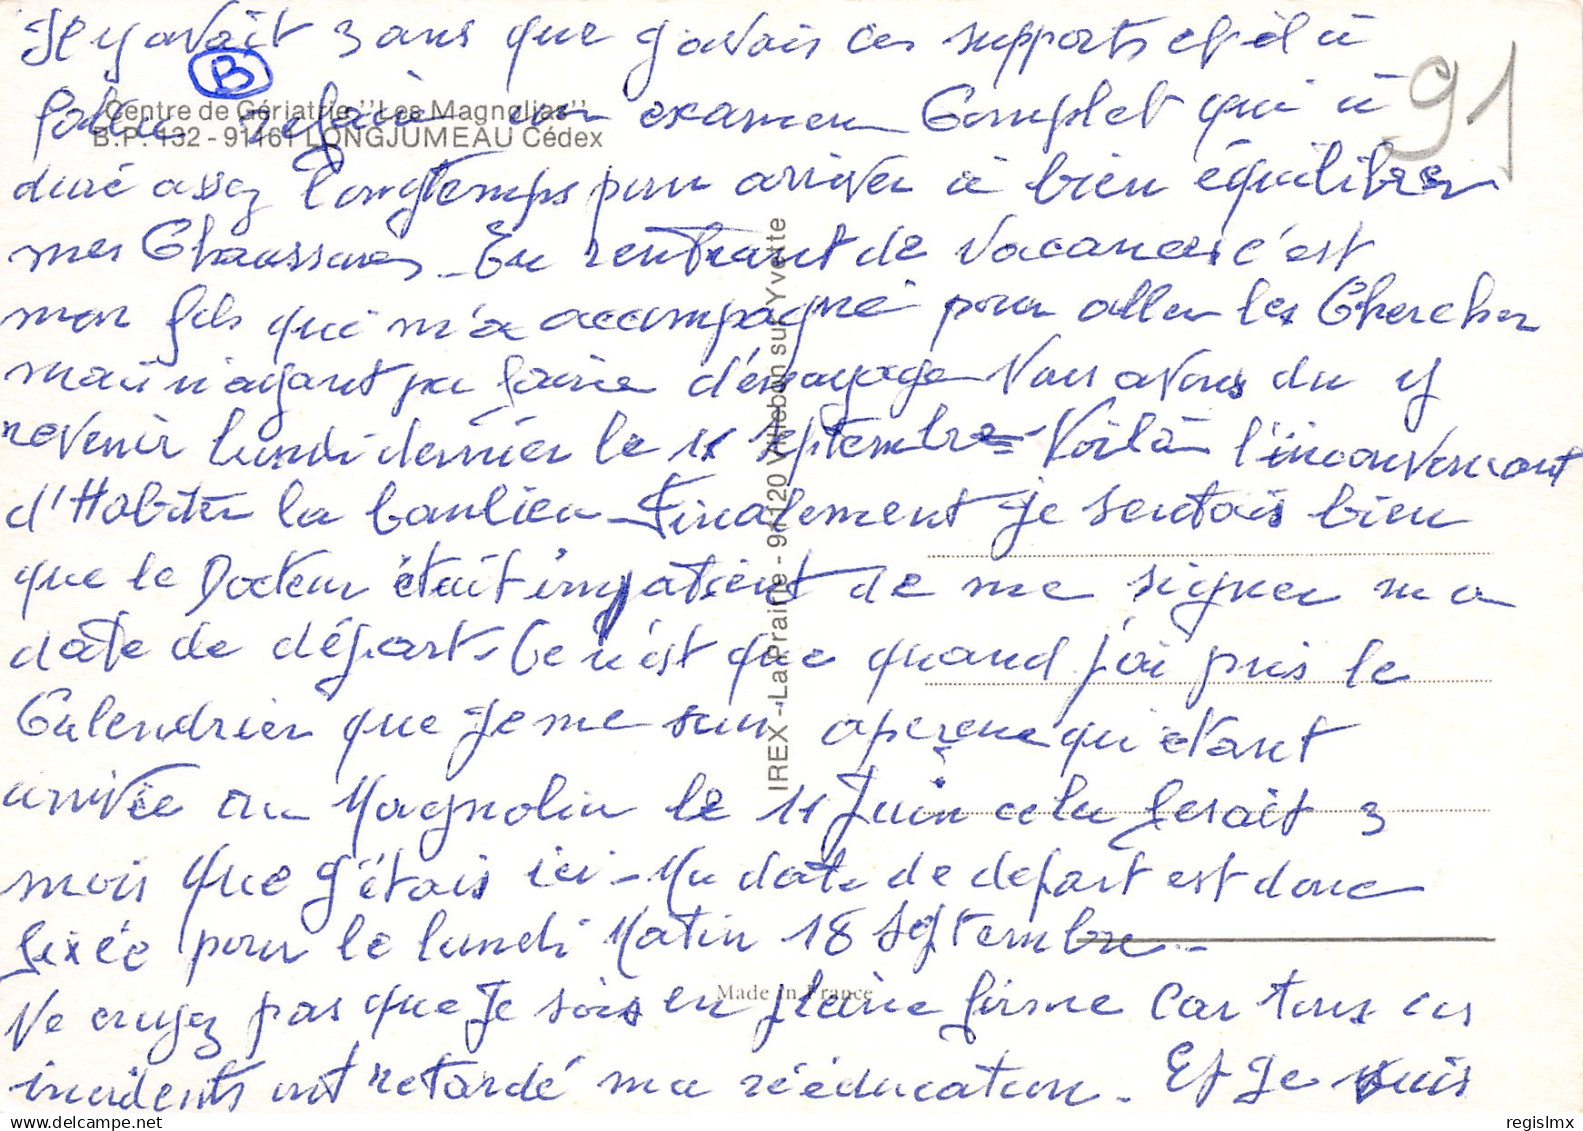 Il y avait 3 ans que j'avais ces supports et il à
B
91
Centre de Gériatrie "Les Magnolias"
B.P. 132 - 91161 LONGJUMEAU Cédex
fallu refaire un examen Complet qui à
duré assez longtemps pour arriver à bien équilibrer
mes Chaussures - En rentrant de vacances c'est
mon fils qui m'a accompagné pour aller les Chercher
mais n'ayant pu faire d'essayage Nous avons du y
revenir lundi dernier le 11 septembre - Voilà l'inconvenient
d'Habiter la banlieu - Finalement je sentais bien
que le Docteur était impatient de me signer ma
date de départ - Ce n'est que quand j'ai pris le
Calendrier que je me suis aperçue qu'étant
arrivée au Magnolia le 11 Juin cela ferait 3
mois que j'étais ici - Ma date de depart est donc
fixée pour le lundi Matin 18 Septembre -
Ne croyez pas que je sois en pleine forme Car tous ces
incidents ont retardé ma rééducation. Et je suis
IREX - La Prairie - 91120 Villebon sur Yvette
Made in France
regislmx@delcampe.net